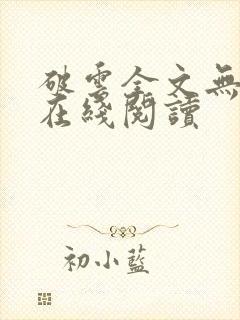 破雲全文無
在綫閱讀
初小藍